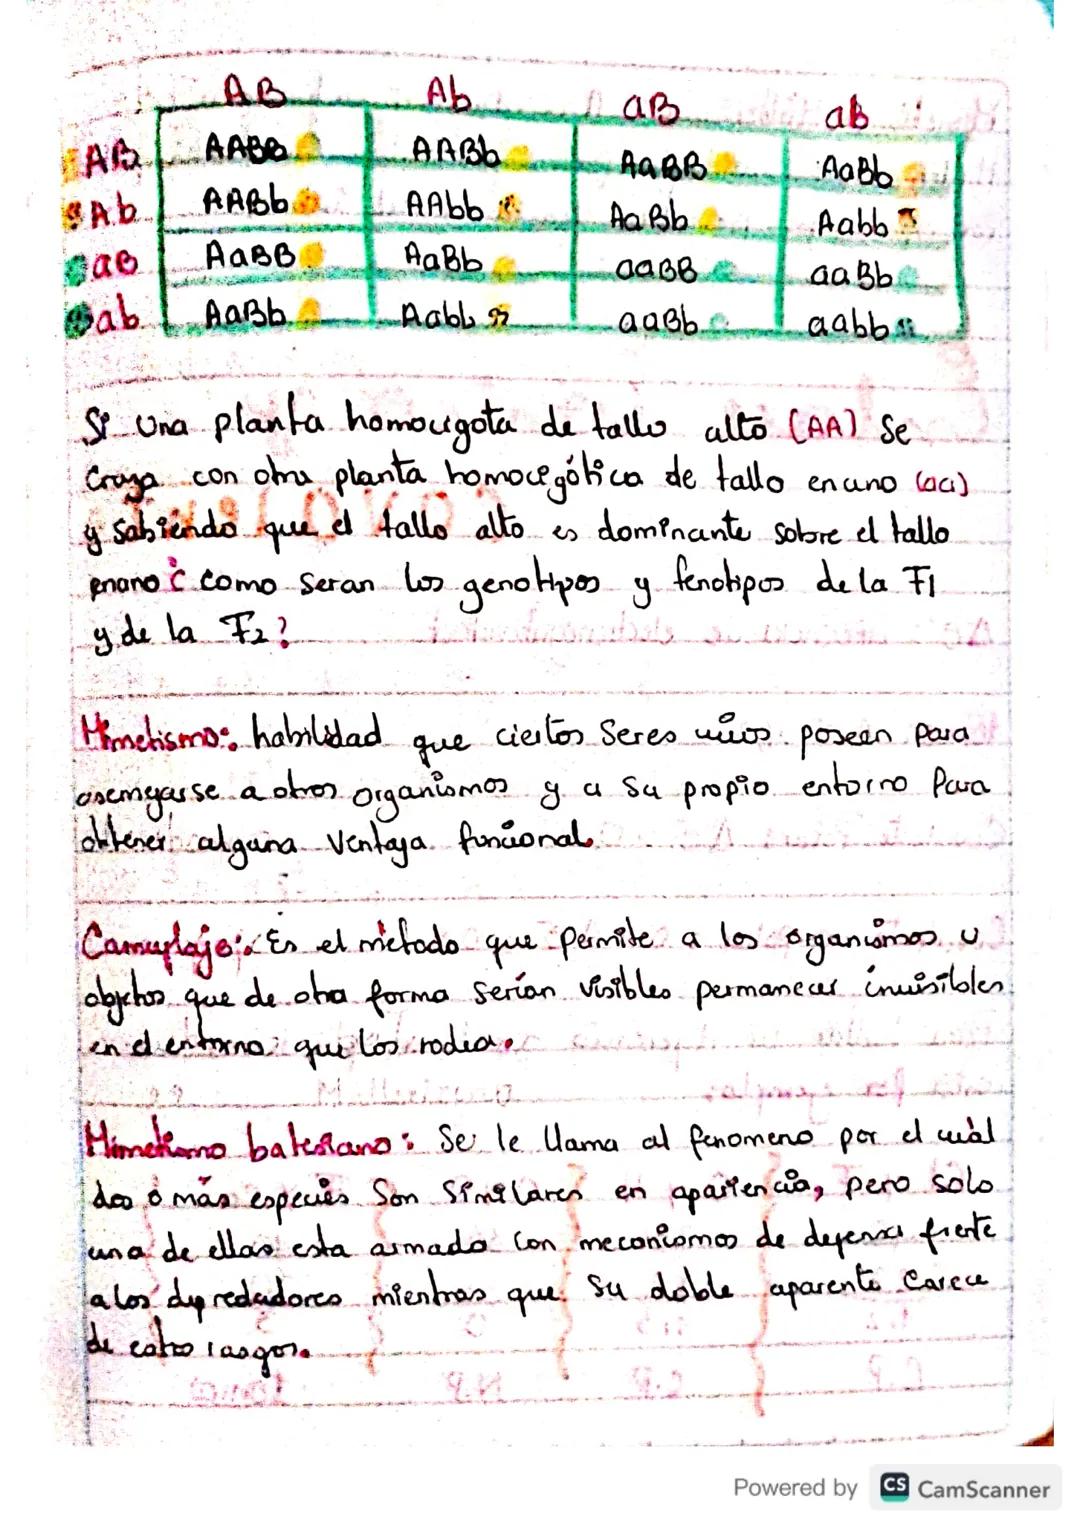 AB Ab aB ab
AB AABB AABb AaBB AaBb
Ab AABb AAbb AaBb Aabb
aB AaBB AaBb aaBB aaBb
ab AaBb Aabb aaBb aabb
Si una planta homocigota de tallo alto (AA) se
Cruza con otra planta homocigótica de tallo enano (aa)
y sabiendo que el tallo alto es dominante sobre el tallo
enano ¿ como seran los genotipos y fenotipos de la F1
y de la F2?
Mimetismo: habilidad que ciertos Seres vivos poseen para
asemejarse a otros organismos y a su propio entorno para
obtener alguna Ventaja funcional.
Camuflaje: Es el método que permite a los organismos u
objetos que de otra forma serían visibles permanecer invisibles
en el entorno que los rodea.
Mimetismo batesiano: Se le llama al fenomeno por el cuál
dos o más especies Son Similares en apariencia, pero solo
una de ellas esta armado con mecanismos de defensa frente
a los depredadores mientras que su doble aparente Carece
de estos rasgos.
Powered by CS CamScanner